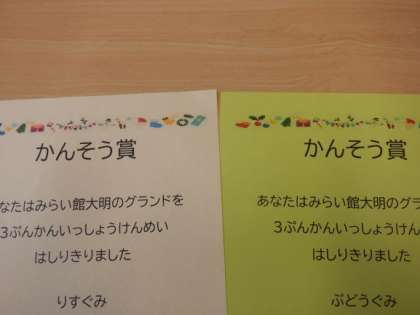 かんそう賞
なたはみらい館大明のグランドを
3ぷんかんいっしょうけんめい
はしりきりました
りすぐみ
かんそう賞
あなたはみらい館大明のグラ
3ぷんかんいっしょうけん
はしりきりました
ぶどうぐみ